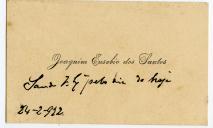 Joaquim Eusebio dos Santos
pelo dia de hoje
24-2-932